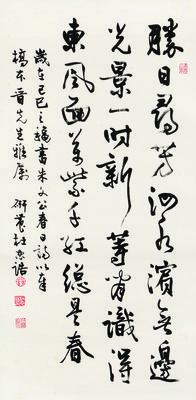 勝日尋芳泗水濱無邊
光景一時新等閒識得
東風面萬紫千紅總是春
歲在己巳之穐書朱文公春日詩以奉
橋本晉先生雅屬 研農杜忠誥